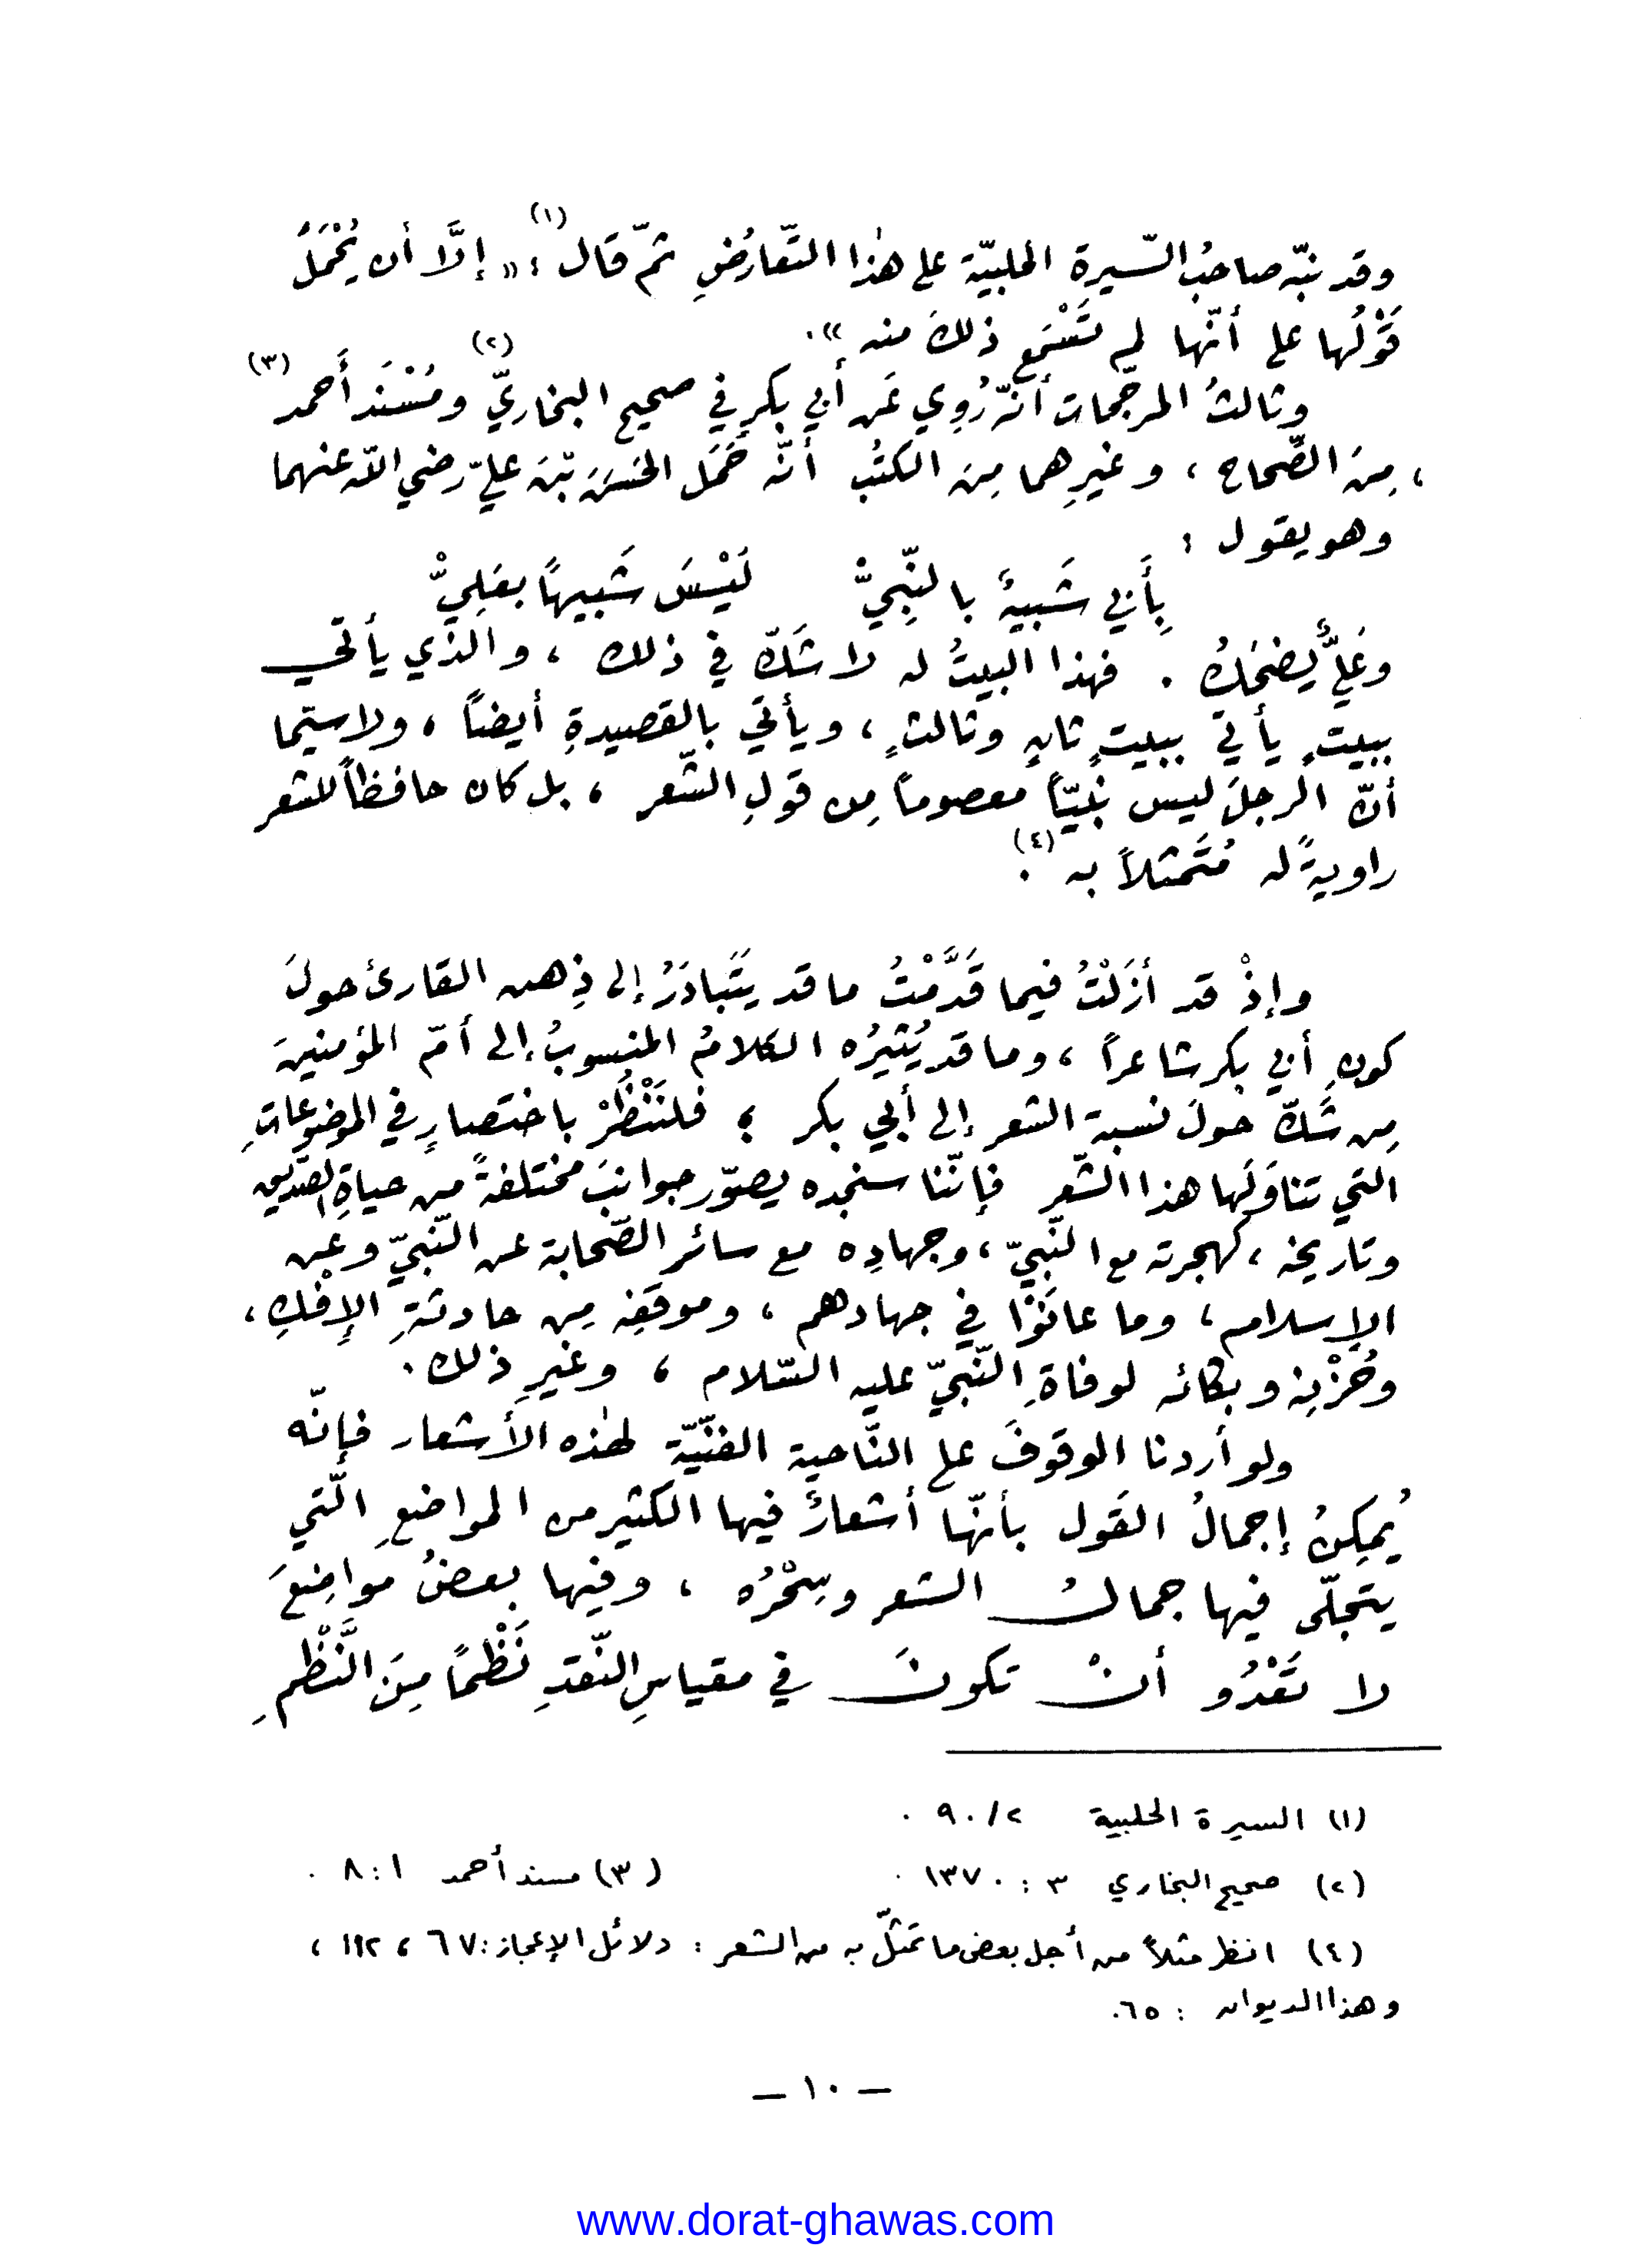 وقد نبّه صاحبُ السّيرة الحلبيّة على هٰذا التّعارُضِ ثمّ قال (١) : « إلَّا أن يُحْمَلَ
قَوْلُها على أنّها لم تَسْمَع ذلكَ منه » .
وثالثُ المرجّحات أنّه رُوِي عَن أبي بكرٍ في صحيح البخاريّ (٢) ومُسْنَد أَحمد (٣)
، مِنَ الصِّحاح ، وغيرِهما مِنَ الكتُب أنّه حَمَل الحَسَنَ بْنَ عليّ رضي الله عنهما
وهو يقول :
بِأَبي شَبيهٌ بالنِّبيّْ لَيْسَ شَبيهًا بعَلِيّْ
وعَليٌّ يضحَكُ . فهذا البيتُ له لا شَكّ في ذلك ، والذي يأتي
ببيتٍ يأتي ببيتٍ ثانٍ وثالثٍ ، ويأتي بالقصيدةِ أيضاً ، ولا سيّما
أنّ الرجلَ ليس نَبيّاً معصوماً مِن قولِ الشّعر ، بل كان حافظاً للشعر
راويةً له مُتَمثلاً به (٤) .
وإذْ قد أزَلْتُ فيما قَدَّمْتُ ما قد يتَبادَرُ إلى ذِهن القارئ حولَ
كونِ أبي بكر شاعراً ، وما قد يُثيرُه الكلامُ المنسوبُ إلى أمّ المؤمنينَ
مِن شَكّ حولَ نسبة الشعر إلى أبي بكر ؛ فلنَنْظُرْ باختصارٍ في الموضوعاتِ
التي تناوَلَها هذا الشّعر فإنّنا سنجده يصوّر جوانبَ مختلفةً من حياةِ الصّدّيق
وتاريخه ، كهجرته مع النّبيّ ، وجهادِه مع سائر الصّحابة عن النّبيّ وعن
الإسلام ، وما عانَوْا في جهادهم ، وموقفِه مِن حادثةِ الإِفْكِ ،
وحُزْنِه وبكائه لوفاةِ النّبيّ عليه السّلام ، وغيرِ ذلك .
ولو أردنا الوقوفَ على النّاحية الفنّيّة لهٰذه الأشعار فإنّه
يُمكِنُ إجمالُ القَول بأنّها أشعارٌ فيها الكثير من المواضعِ الّتي
يتجلّى فيها جمالُ الشعر وسِحْرُه ، وفيها بعضُ مَواضِعَ
لا تَعْدُو أنْ تكونَ في مقياسِ النّقدِ نَظْمًا مِنَ النَّظْمِ
(١) السيرة الحلبية ٢/ ٩٠ .
(٢) صحيح البخاري ٣ : ١٣٧٠ .
(٣) مسند أحمد ١ : ٨ .
(٤) انظر مثلاً من أجل بعض ما تمثّل به من الشعر : دلائل الإعجاز : ٦٧ ، ١٩٢ ،
وهذا الديوان : ٦٥.
— ١٠ —
www.dorat-ghawas.com